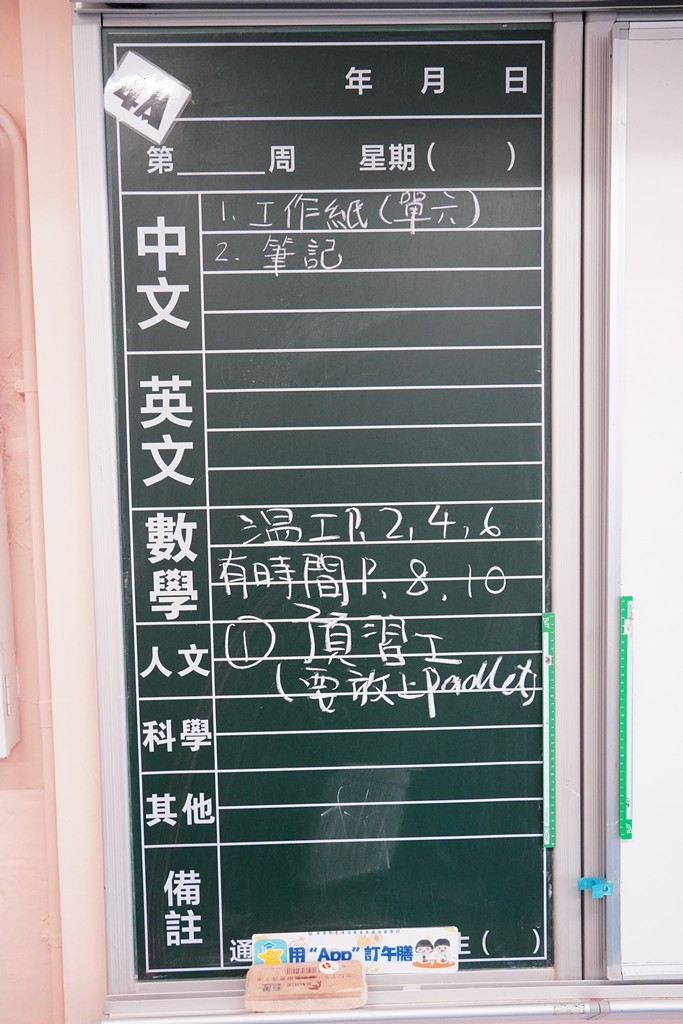 4A
年 月 日
第____周 星期( )
中文
1. 工作紙(單六)
2. 筆記
英文
數學
溫工P. 2, 4, 6
有時間P. 8, 10
人文
① 預習工
(要放上padlet)
科學
其他
備註
通
用“App”訂午膳
( )